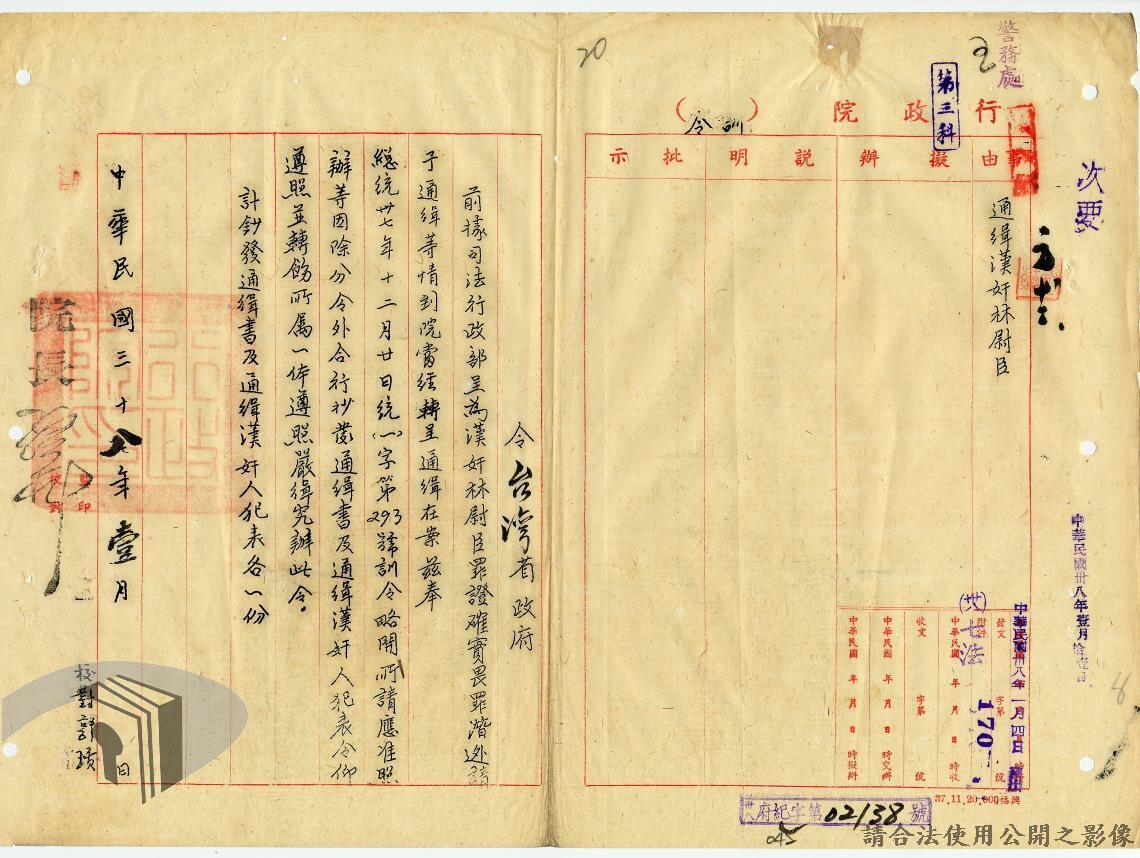 警務處
次要
第三科
行政院（訓令）
事由
擬辦
說明
批示
通緝漢奸林尉臣
中華民國卅八年壹月拾壹日
中華民國卅八年一月四日
發文 字第 號
附件
(卅)七法 170
中華民國 年 月 日 時收
收文 字第 號
中華民國 年 月 日 時交辦
中華民國 年 月 日 時擬辦
37.11.20.000福興
府紀字第02138號
20
8
令台灣省政府
前據司法行政部呈為漢奸林尉臣罪證確實畏罪潛逃請
予通緝等情到院當經轉呈通緝在案茲奉
總統卅七年十二月廿日統(一)字第293號訓令略開所請應准照
辦等因除分令外合行抄發通緝書及通緝漢奸人犯表令仰
遵照並轉飭所屬一体遵照嚴緝究辦此令。
計鈔發通緝書及通緝漢奸人犯表各一份
院長
中華民國三十八年壹月 日
監印
校對
請合法使用公開之影像